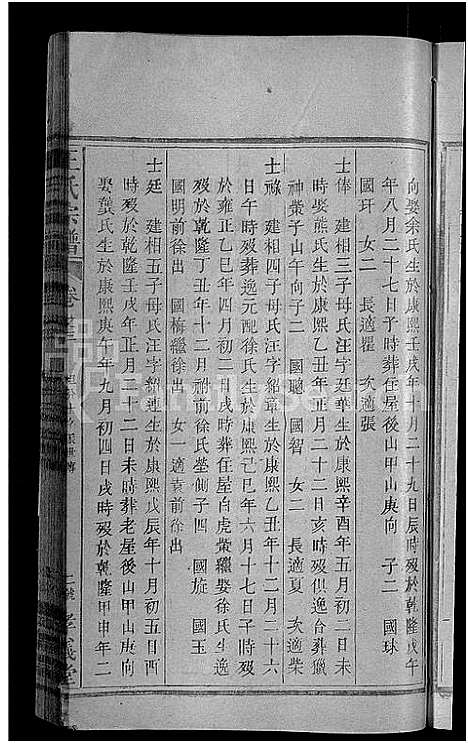 向娶余氏生於康熙壬戌年十月二十九日辰時歿於乾隆戊午
年八月二十七日子時葬住屋後山甲山庚向 子二 國球
國玕 女二 長適瞿 次適張
士俸 建相三子母氏汪字廷華生於康熙辛酉年五月初二日未
時娶熊氏生於康熙乙丑年正月二十二日亥時歿俱逸台葬獵
神衆子山午向子二 國聰 國智 女二 長適夏 次適柴
士祿 建相四子母氏汪字紹章生於康熙乙丑年十二月二十六
日午時歿葬逸元配徐氏生於康熙己巳年六月十七日子時歿
於雍正乙巳年四月初二日戌時葬住屋白虎衆繼娶徐氏生逸
歿於乾隆丁丑年十二月祔前徐氏塋側子四 國旋 國玉
國明前徐出 國梅繼徐出 女一適袁前徐出
士廷 建相五子母氏汪字紹連生於康熙戊辰年十月初五日酉
時歿於乾隆壬戌年正月二十二日未時葬老屋後山甲山庚向
娶龔氏生於康熙庚午年九月初四日戌時歿於乾隆甲申年二
王氏宗譜
孝義堂